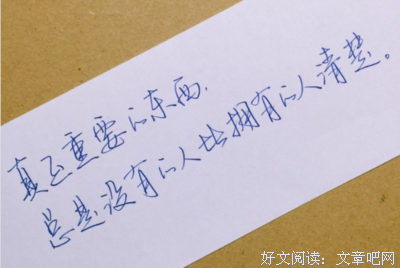 真正重要的东西，
总是没有的人比拥有的人清楚。
好文阅读：文章吧网